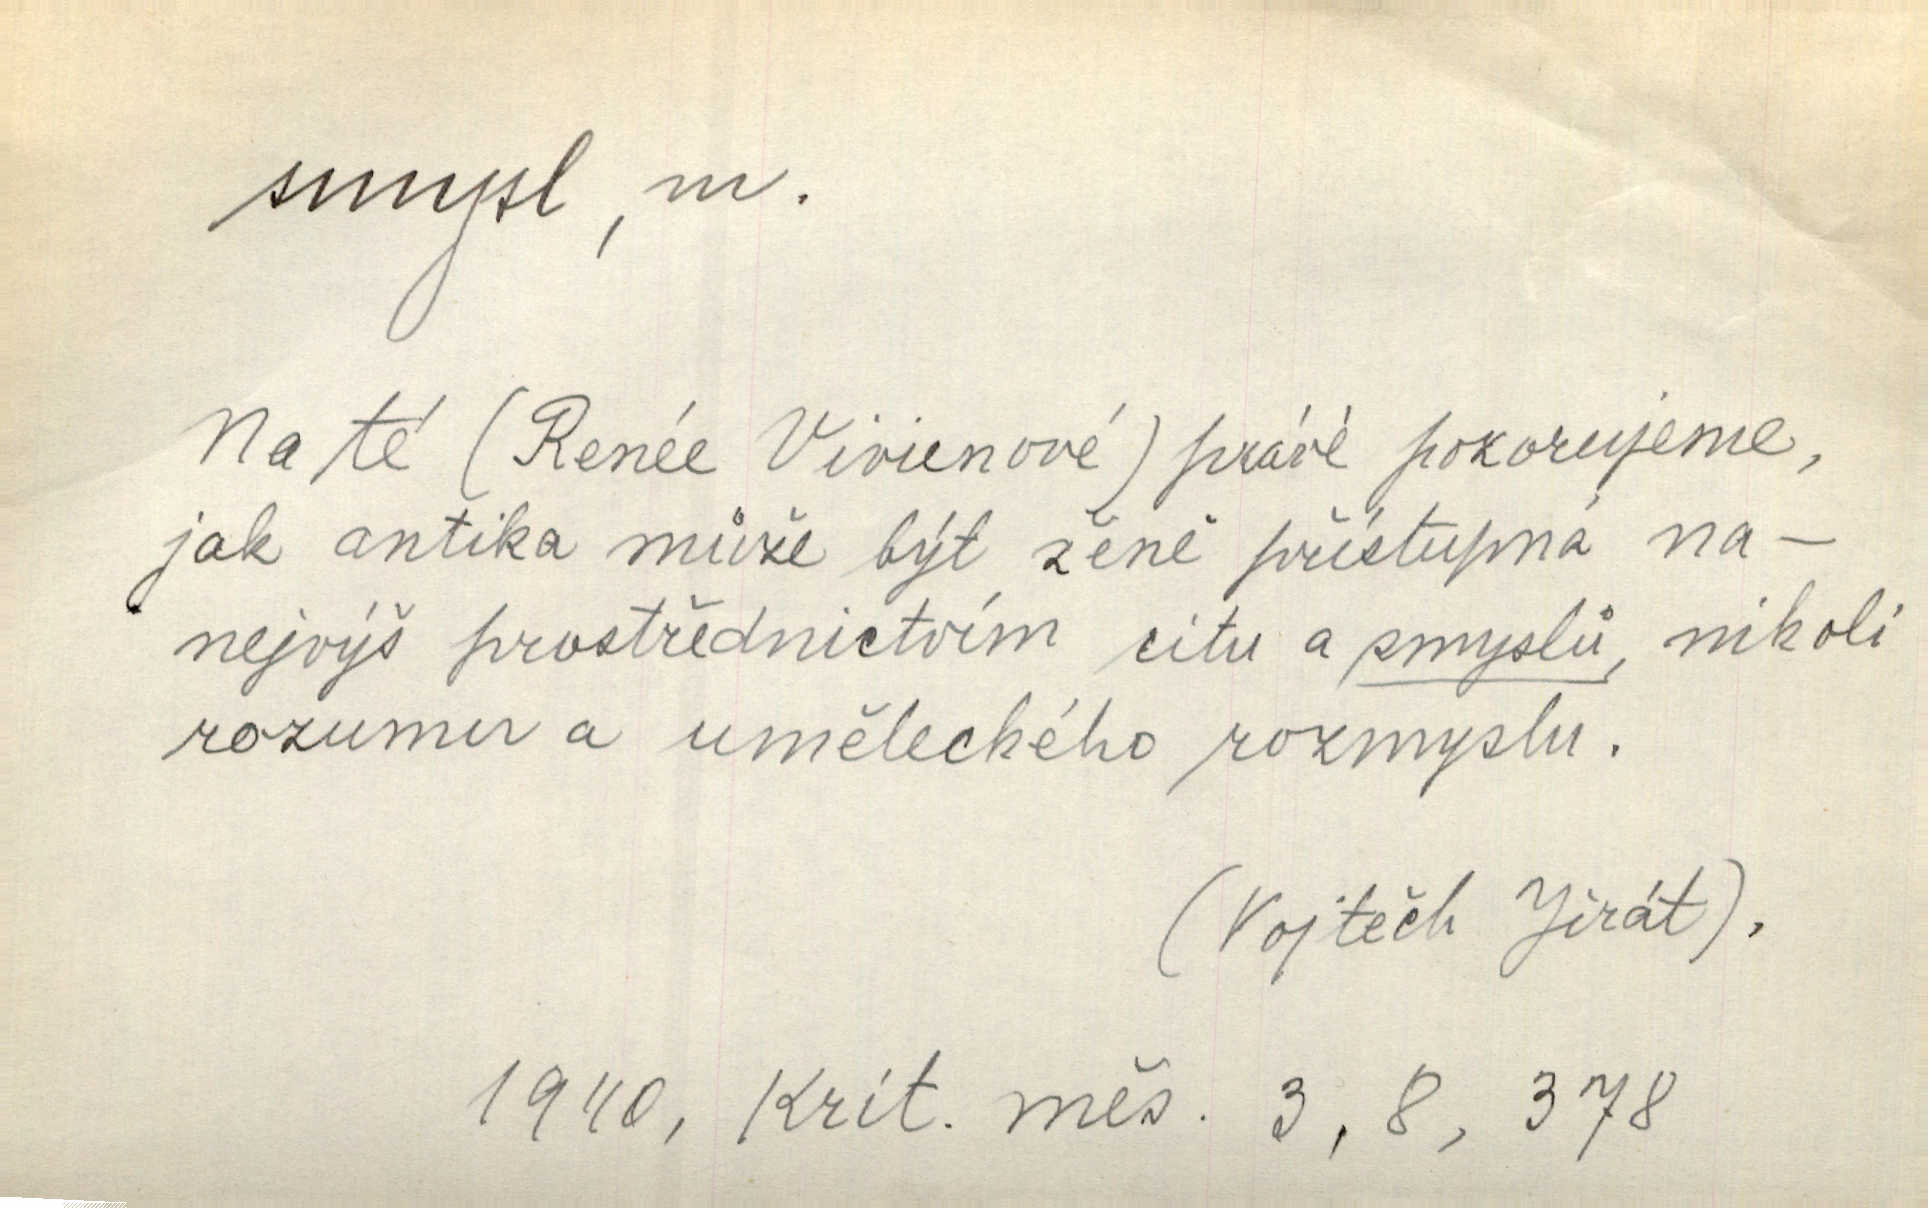 smysl, m.
Na té (Renée Vivienové) právě pozorujeme,
jak antika může být ženě přístupná na-
nejvýš prostřednictvím citu a smyslů, nikoli
rozumu a uměleckého rozmyslu.
(Vojtěch Jirát).
1940, Krit. měs. 3, 8, 378